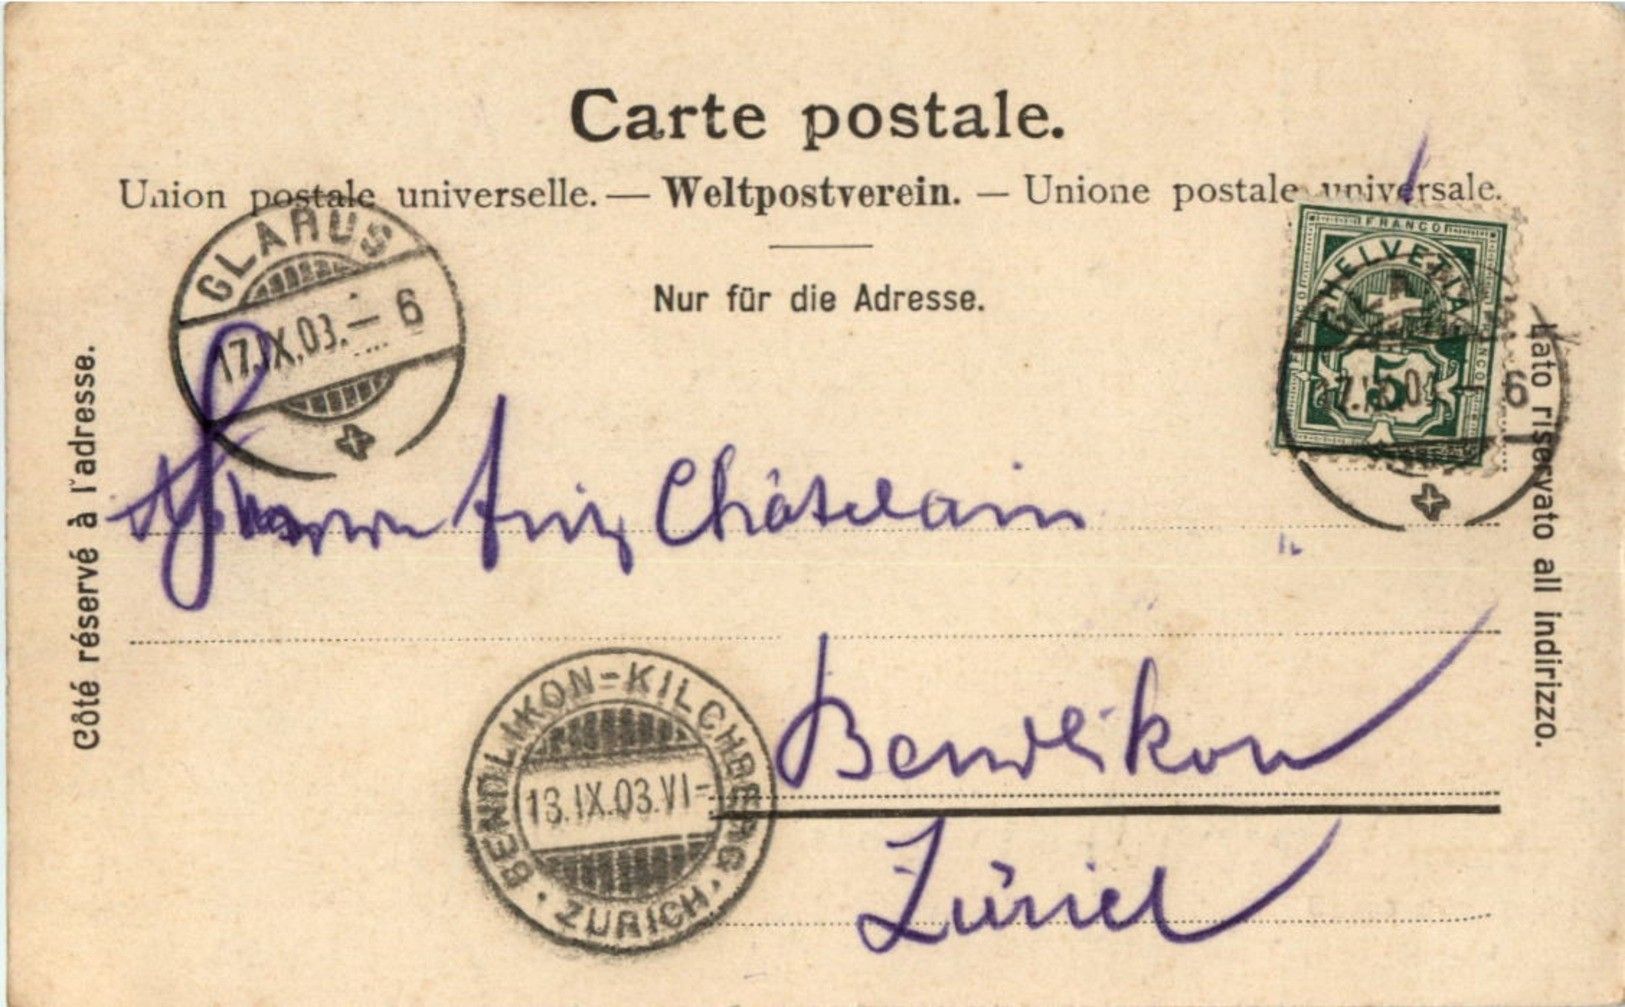 Carte postale.
Union postale universelle. — Weltpostverein. — Unione postale universale.
Nur für die Adresse.
Côté réservé à l'adresse.
Lato riservato all indirizzo.
GLARUS
17.IX.03.— 6
FRANCO
HELVETIA
5
6
Châtelain
Bendlikon
Zürich
BENDLIKON-KILCHBERG.
18.IX.03.VI-
ZÜRICH